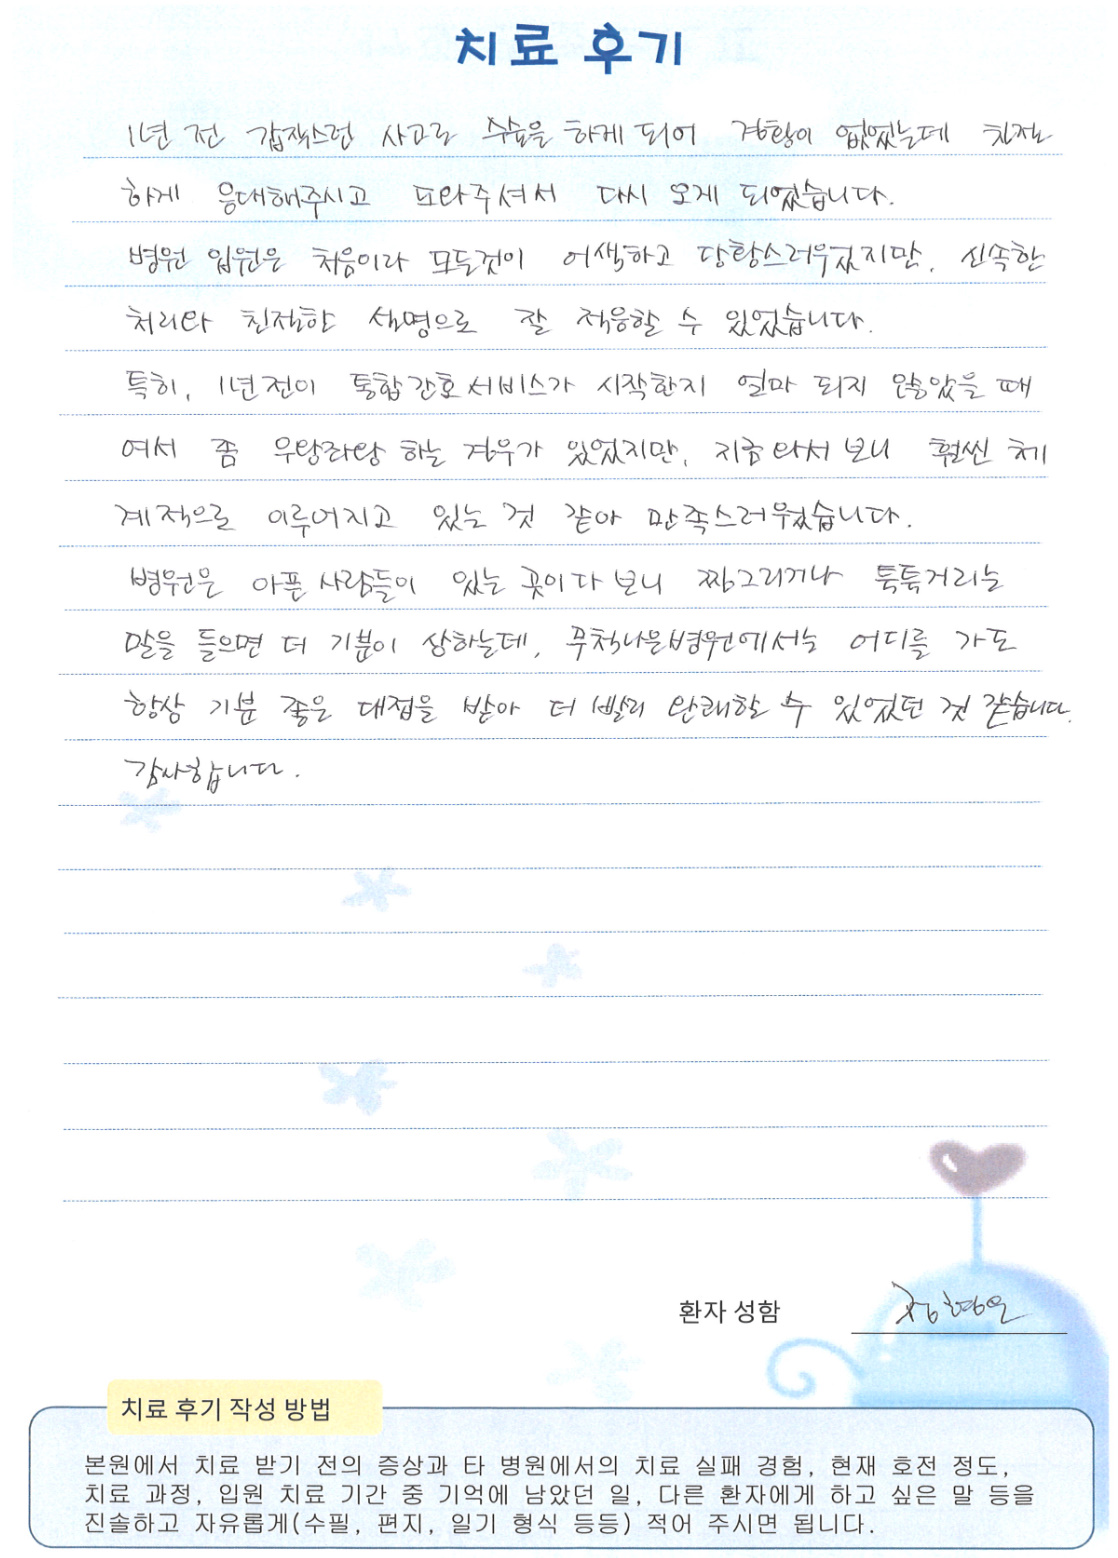 치료 후기
1년 전 갑작스런 사고로 수술을 하게 되어 경황이 없었는데 친절
하게 응대해주시고 도와주셔서 다시 오게 되었습니다.
병원 입원은 처음이라 모든것이 어색하고 당황스러우었지만, 신속한
처리와 친절한 설명으로 잘 적응할 수 있었습니다.
특히, 1년전이 통합간호서비스가 시작한지 얼마 되지 않았을 때
여서 좀 우왕좌왕 하는 경우가 있었지만, 지금 와서 보니 훨씬 체
계적으로 이루어지고 있는 것 같아 만족스러웠습니다.
병원은 아픈 사람들이 있는 곳이다 보니 찌그리거나 툭툭거리는
말을 들으면 더 기분이 상하는데, 무척나은병원에서는 어디를 가도
항상 기분 좋은 대접을 받아 더 빨리 완쾌할 수 있었던 것 같습니다.
감사합니다.
환자 성함
치료 후기 작성 방법
본원에서 치료 받기 전의 증상과 타 병원에서의 치료 실패 경험, 현재 호전 정도,
치료 과정, 입원 치료 기간 중 기억에 남았던 일, 다른 환자에게 하고 싶은 말 등을
진솔하고 자유롭게(수필, 편지, 일기 형식 등등) 적어 주시면 됩니다.